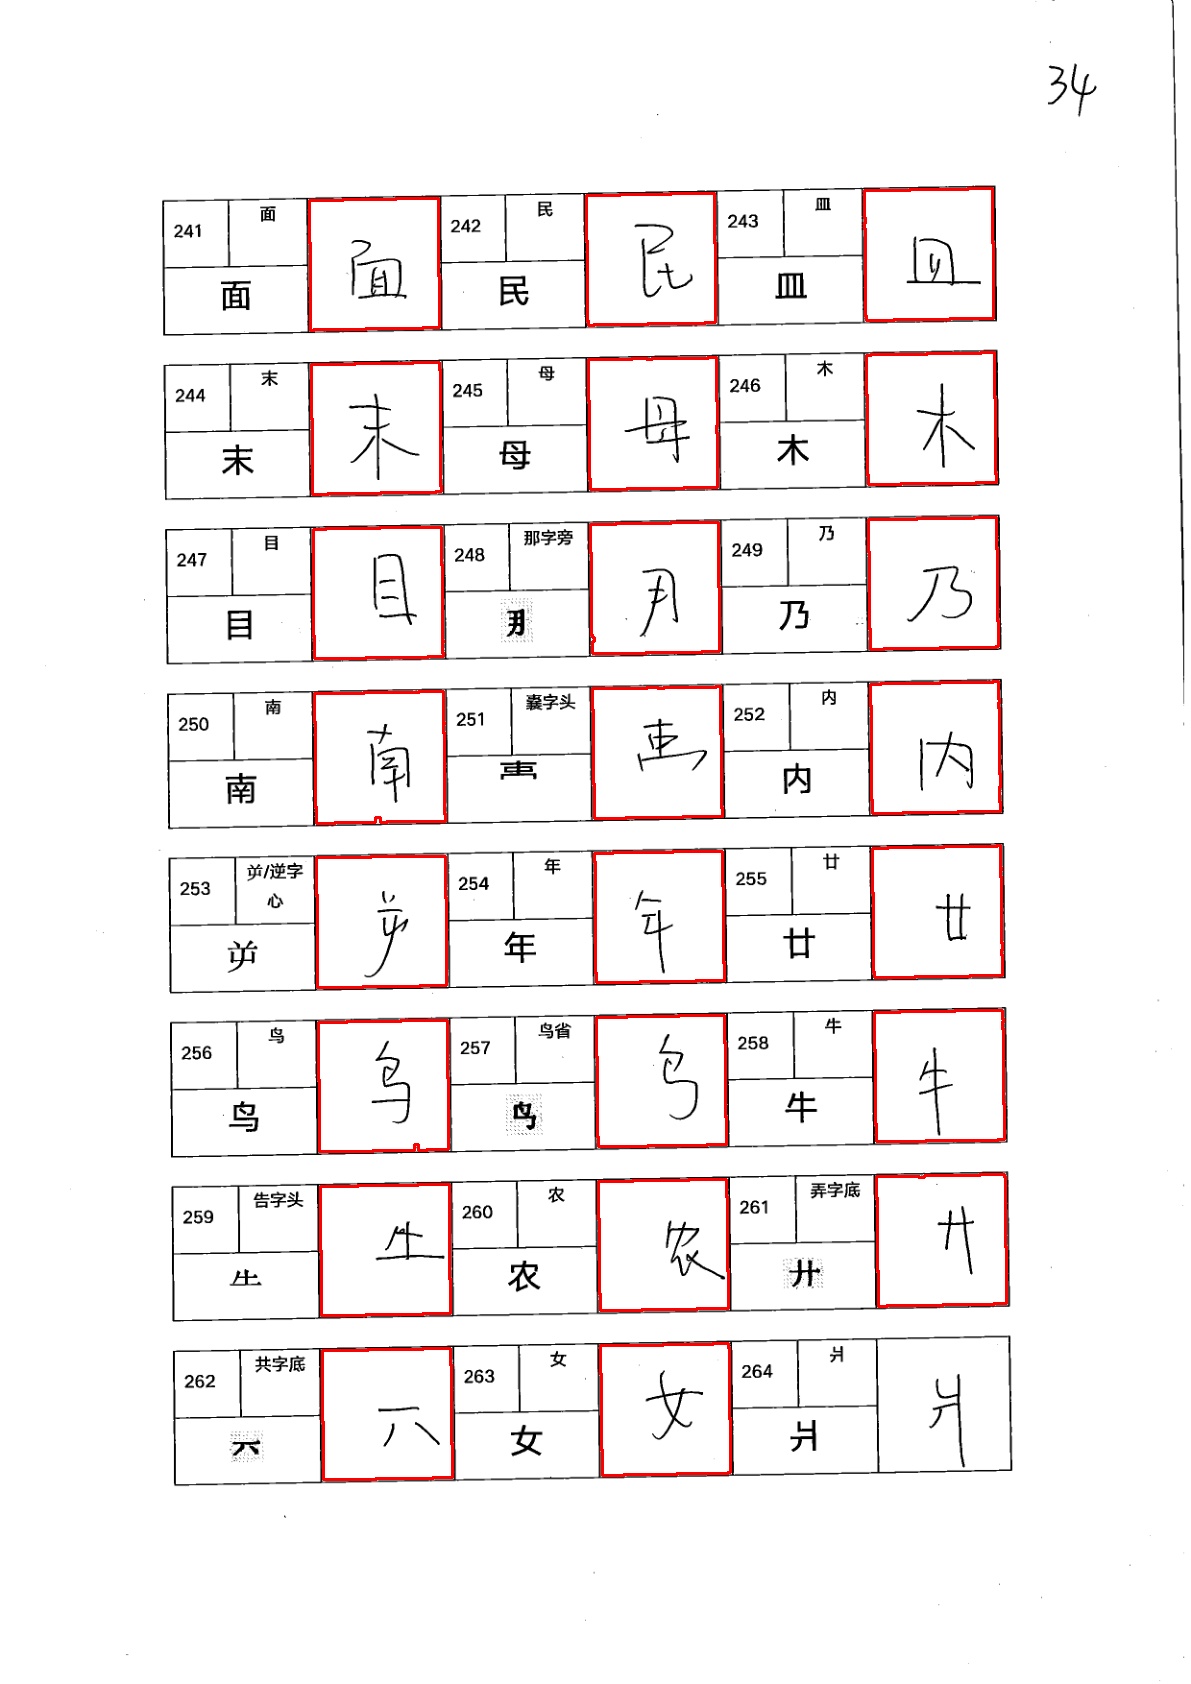 34
241 面 面 242 民 民 243 皿 皿
面 民 皿
244 末 末 245 母 母 246 木 木
末 母 木
247 目 目 248 那字旁 249 乃 乃
目 乃
250 南 南 251 囊字头 252 内 内
南 内
253 屰/逆字心 屰 254 年 年 255 廿 廿
屰 年 廿
256 鸟 鸟 257 鸟省 258 牛 牛
鸟 牛
259 告字头 260 农 农 261 弄字底
农 廾
262 共字底 263 女 女 264 爿
女 爿